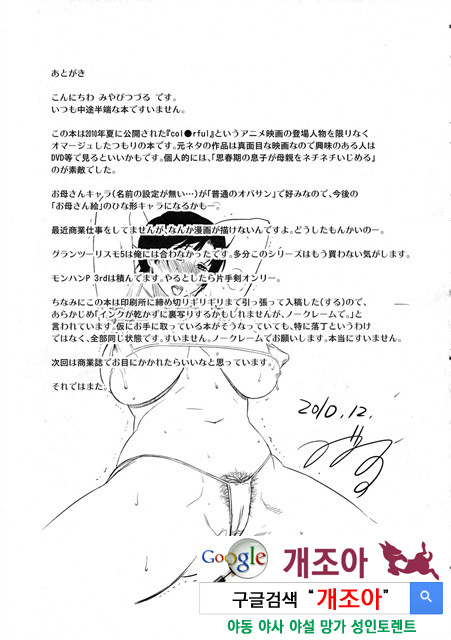 あとがき
こんにちわ みやびつづる です。
いつも中途半端な本ですいません。
この本は2010年夏に公開された『col●rful』というアニメ映画の登場人物を限りなく
オマージュしたつもりの本です。元ネタの作品は真面目な映画なので興味のある人は
DVD等で見るといいかもです。個人的には、「思春期の息子が母親をネチネチいじめる」
のが素敵でした。
お母さんキャラ(名前の設定が無い…)が「普通のオバサン」で好みなので、今後の
「お母さん絵」のひな形キャラになるかもー。
最近商業仕事をしてませんが、なんか漫画が描けないんですよ。どうしたもんかいのー。
グランツーリスモ5は俺には合わなかったです。多分このシリーズはもう買わない気がします。
モンハンP 3rdは積んでます。やるとしたら片手剣オンリー。
ちなみにこの本は印刷所に締め切りギリギリまで引っ張って入稿した(する)ので、
あらかじめ「インクが乾かずに裏写りするかもしれませんが、ノークレームで。」と
言われています。仮にお手に取っている本がそうなっていても、特に落丁というわけ
ではなく、全部同じ状態です。すいません。ノークレームでお願いします。本当にすいません。
次回は商業誌でお目にかかれたらいいなと思っています。
それではまた。
2010.12.
Google 개조아
구글검색 “개조아”
야동 야사 야설 망가 성인토렌트